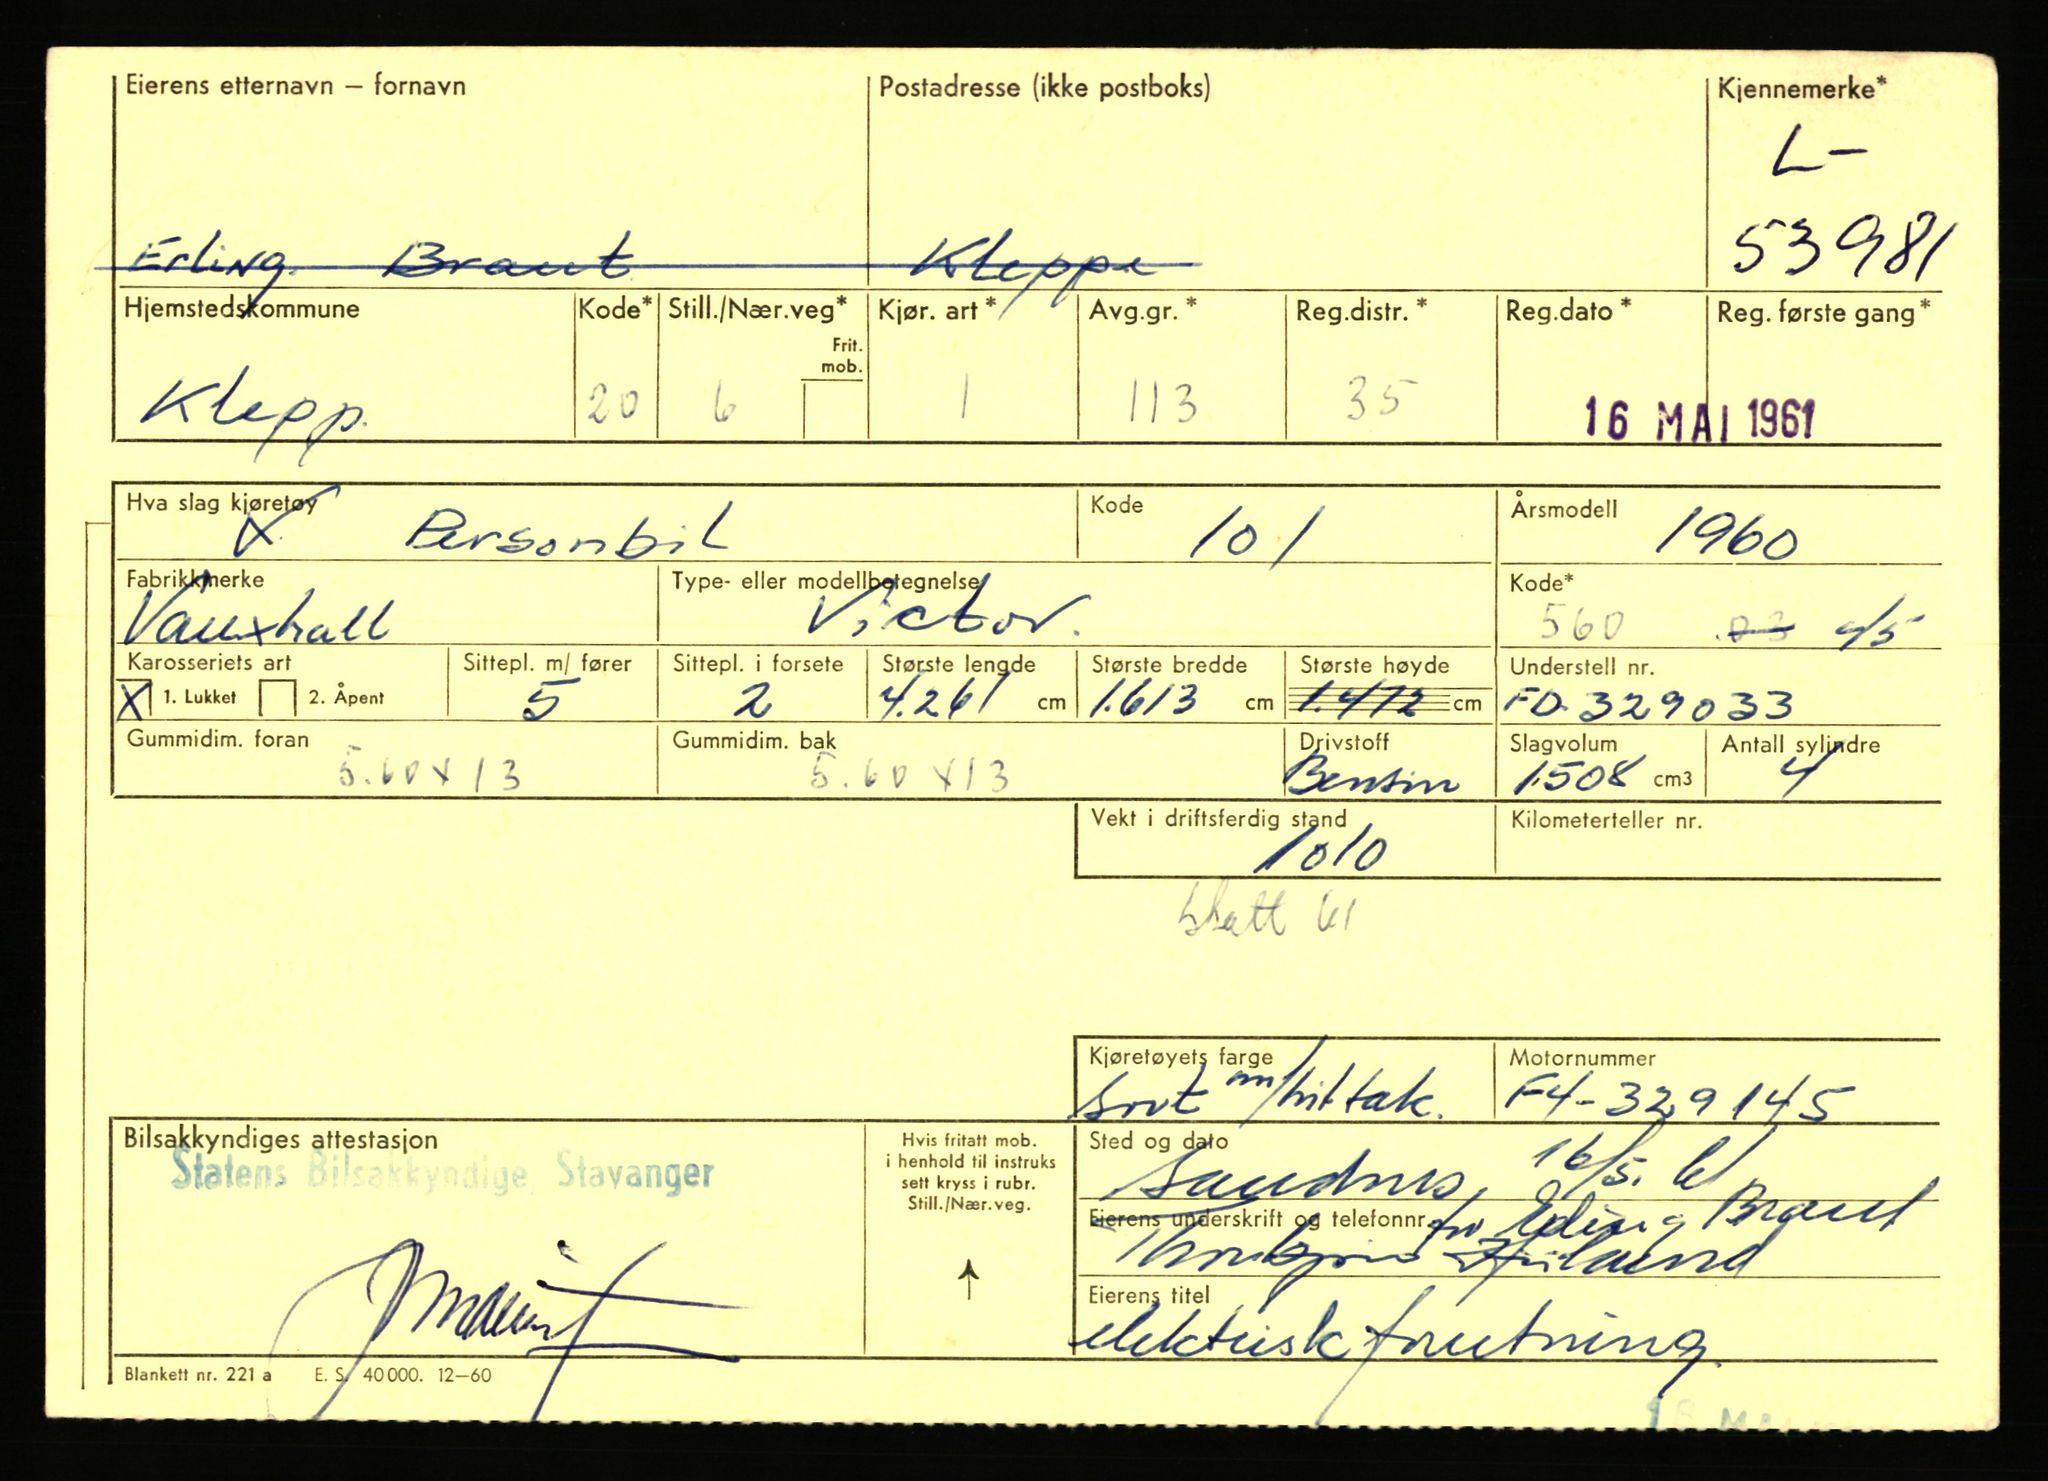 Eierens etternavn – fornavn Postadresse (ikke postboks) Kjennemerke*
L-
53981
Erling Braut Kleppe
Hjemstedskommune Kode* Still./Nær.veg* Kjør. art* Avg.gr.* Reg.distr.* Reg.dato* Reg. første gang*
Frit. mob.
Klepp. 20 6 1 113 35 16 MAI 1961
Hva slag kjøretøy Kode Årsmodell
X Personbil 101 1960
Fabrikkmerke Type- eller modellbetegnelse Kode*
Vauxhall Victor. 560 03 4/5
Karosseriets art Sittepl. m/ fører Sittepl. i forsete Største lengde Største bredde Største høyde Understell nr.
X 1. Lukket 2. Åpent 5 2 4.261 cm 1.613 cm 1.472 cm FD.329033
Gummidim. foran Gummidim. bak Drivstoff Slagvolum Antall sylindre
5.60 x 13 5.60 x 13 Bensin 1.508 cm3 4
Vekt i driftsferdig stand Kilometerteller nr.
1010
skatt 61
Kjøretøyets farge Motornummer
sort m/hvit tak. F4-329145
Bilsakkyndiges attestasjon Hvis fritatt mob. i henhold til instruks sett kryss i rubr. Still./Nær.veg. Sted og dato
Statens Bilsakkyndige Stavanger Sandnes, 16/5. 61
Eierens underskrift og telefonnr. for Erling Braut
Eierens titel
elektrisk forretning.
Blankett nr. 221 a E. S. 40 000. 12–60